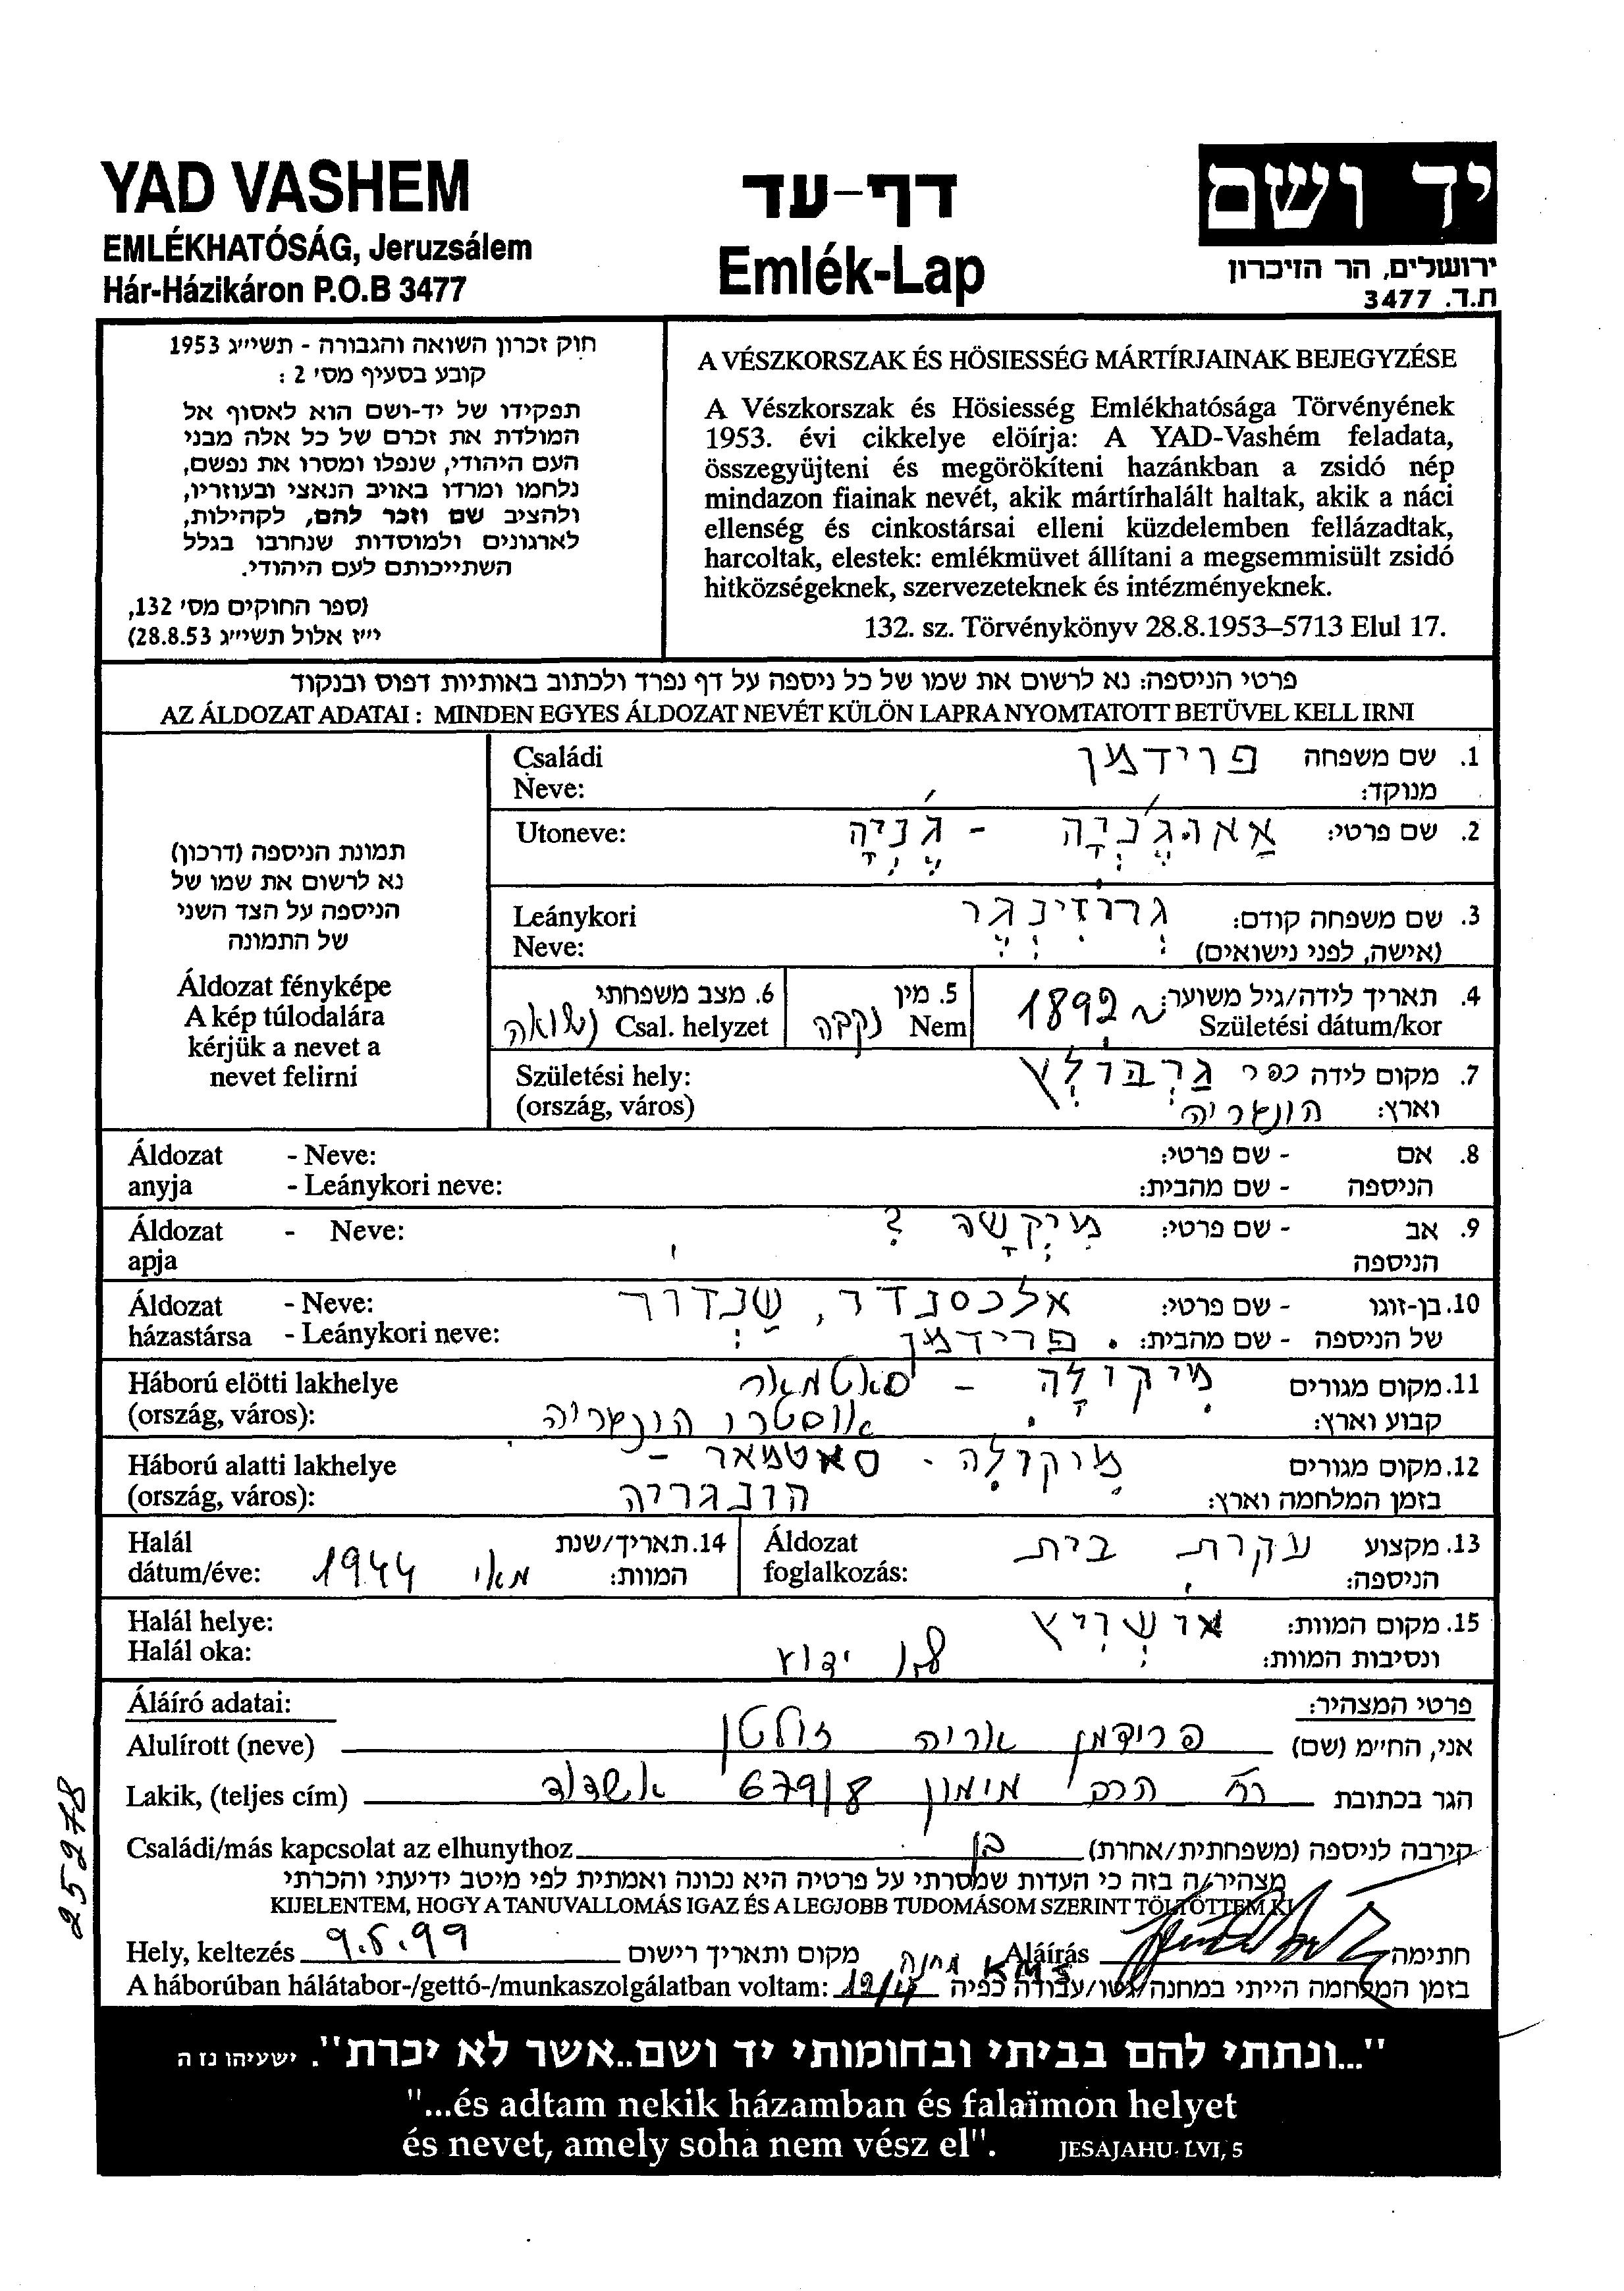 YAD VASHEM
EMLÉKHATÓSÁG, Jeruzsálem
Hár-Házikáron P.O.B 3477
דף-עד
Emlék-Lap
יד ושם
ירושלים, הר הזיכרון
ת.ד. 3477
חוק זכרון השואה והגבורה - תשי״ג 1953
קובע בסעיף מס׳ 2 :
תפקידו של יד-ושם הוא לאסוף אל
המולדת את זכרם של כל אלה מבני
העם היהודי, שנפלו ומסרו את נפשם,
נלחמו ומרדו באויב הנאצי ובעוזריו,
ולהציב שם וזכר להם, לקהילות,
לארגונים ולמוסדות שנחרבו בגלל
השתייכותם לעם היהודי.
(ספר החוקים מס׳ 132,
י״ז אלול תשי״ג 28.8.53)
A VÉSZKORSZAK ÉS HÖSIESSÉG MÁRTÍRJAINAK BEJEGYZÉSE
A Vészkorszak és Hösiesség Emlékhatósága Törvényének
1953. évi cikkelye elöírja: A YAD-Vashém feladata,
összegyüjteni és megörökíteni hazánkban a zsidó nép
mindazon fiainak nevét, akik mártírhalált haltak, akik a náci
ellenség és cinkostársai elleni küzdelemben fellázadtak,
harcoltak, elestek: emlékmüvet állítani a megsemmisült zsidó
hitközségeknek, szervezeteknek és intézményeknek.
132. sz. Törvénykönyv 28.8.1953–5713 Elul 17.
פרטי הניספה: נא לרשום את שמו של כל ניספה על דף נפרד ולכתוב באותיות דפוס ובנקוד
AZ ÁLDOZAT ADATAI : MINDEN EGYES ÁLDOZAT NEVÉT KÜLÖN LAPRA NYOMTATOTT BETÜVEL KELL IRNI
תמונת הניספה (דרכון)
נא לרשום את שמו של
הניספה על הצד השני
של התמונה
Áldozat fényképe
A kép túlodalára
kérjük a nevet a
nevet felirni
1. שם משפחה פרידמן Családi
מנוקד: Neve:
2. שם פרטי: אַאוּגֶ׳נְיָה - גֶ׳נְיָה Utoneve:
3. שם משפחה קודם: גְרוֹזִינְגֶר Leánykori
(אישה, לפני נישואים) Neve:
4. תאריך לידה/גיל משוער: ~ 1892
Születési dátum/kor
5. מין נקבה
Nem
6. מצב משפחתי נשואה
Csal. helyzet
7. מקום לידה כפר Születési hely:
וארץ: הונגריה (ország, város)
8. אם - שם פרטי: Áldozat - Neve:
הניספה - שם מהבית: anyja - Leánykori neve:
9. אב - שם פרטי: מִיקְשָה ? Áldozat - Neve:
הניספה apja
10. בן-זוגו - שם פרטי: אלכסנדר, שַנְדור Áldozat - Neve:
של הניספה - שם מהבית: פרידמן házastársa - Leánykori neve:
11. מקום מגורים מיקולָה - סאטמאר Háború elötti lakhelye
קבוע וארץ: אוסטרו הונגריה (ország, város):
12. מקום מגורים מיקולה - סאטמאר - Háború alatti lakhelye
בזמן המלחמה וארץ: הונגריה (ország, város):
13. מקצוע עקרת בית Áldozat
הניספה: foglalkozás:
14. תאריך/שנת Halál
המוות: מאי 1944 dátum/éve:
15. מקום המוות: אושְוִיץ Halál helye:
ונסיבות המוות: לא ידוע Halál oka:
פרטי המצהיר: Áláíró adatai:
אני, החי״מ (שם) פרידמן אריה זולטן Alulírott (neve)
הגר בכתובת רח׳ הרב מימון 679/8 אשדוד Lakik, (teljes cím)
קירבה לניספה (משפחתית/אחרת) בן Családi/más kapcsolat az elhunythoz
מצהיר/ה בזה כי העדות שמסרתי על פרטיה היא נכונה ואמתית לפי מיטב ידיעתי והכרתי
KIJELENTEM, HOGY A TANUVALLOMÁS IGAZ ÉS A LEGJOBB TUDOMÁSOM SZERINT TÖLTÖTTEM KI
חתימה Aláírás מקום ותאריך רישום 9.5.99 Hely, keltezés
בזמן המלחמה הייתי במחנה/גטו/עבודה כפיה מחנה A háborúban hálátabor-/gettó-/munkaszolgálatban voltam:
"...ונתתי להם בביתי ובחומותי יד ושם..אשר לא יכרת". ישעיהו נז ה
"...és adtam nekik házamban és falaïmon helyet
és nevet, amely soha nem vész el". JESAJAHU LVI, 5
25278